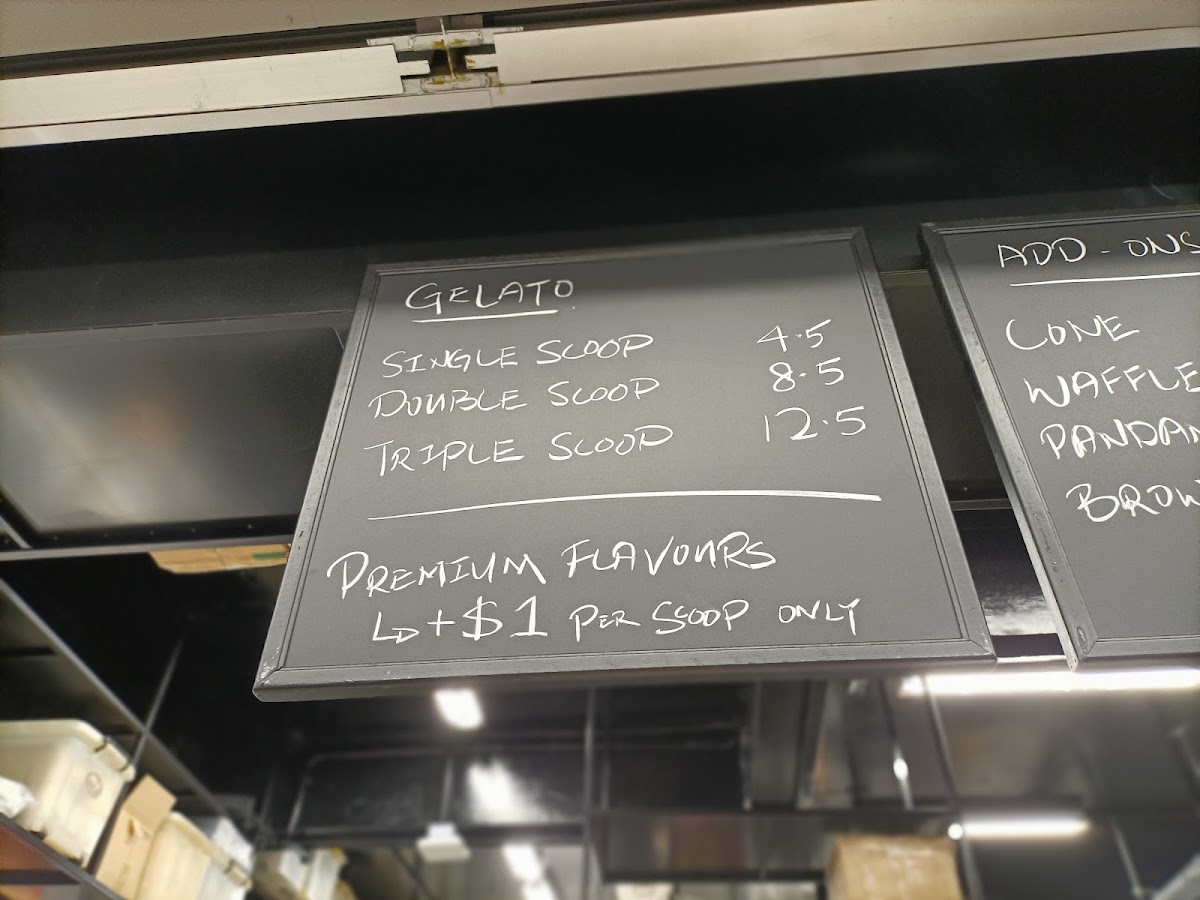 GELATO
SINGLE SCOOP 4.5
DOUBLE SCOOP 8.5
TRIPLE SCOOP 12.5
PREMIUM FLAVOURS
↳ +$1 PER SCOOP ONLY
ADD-ONS
CONE
WAFFLE
PANDAN